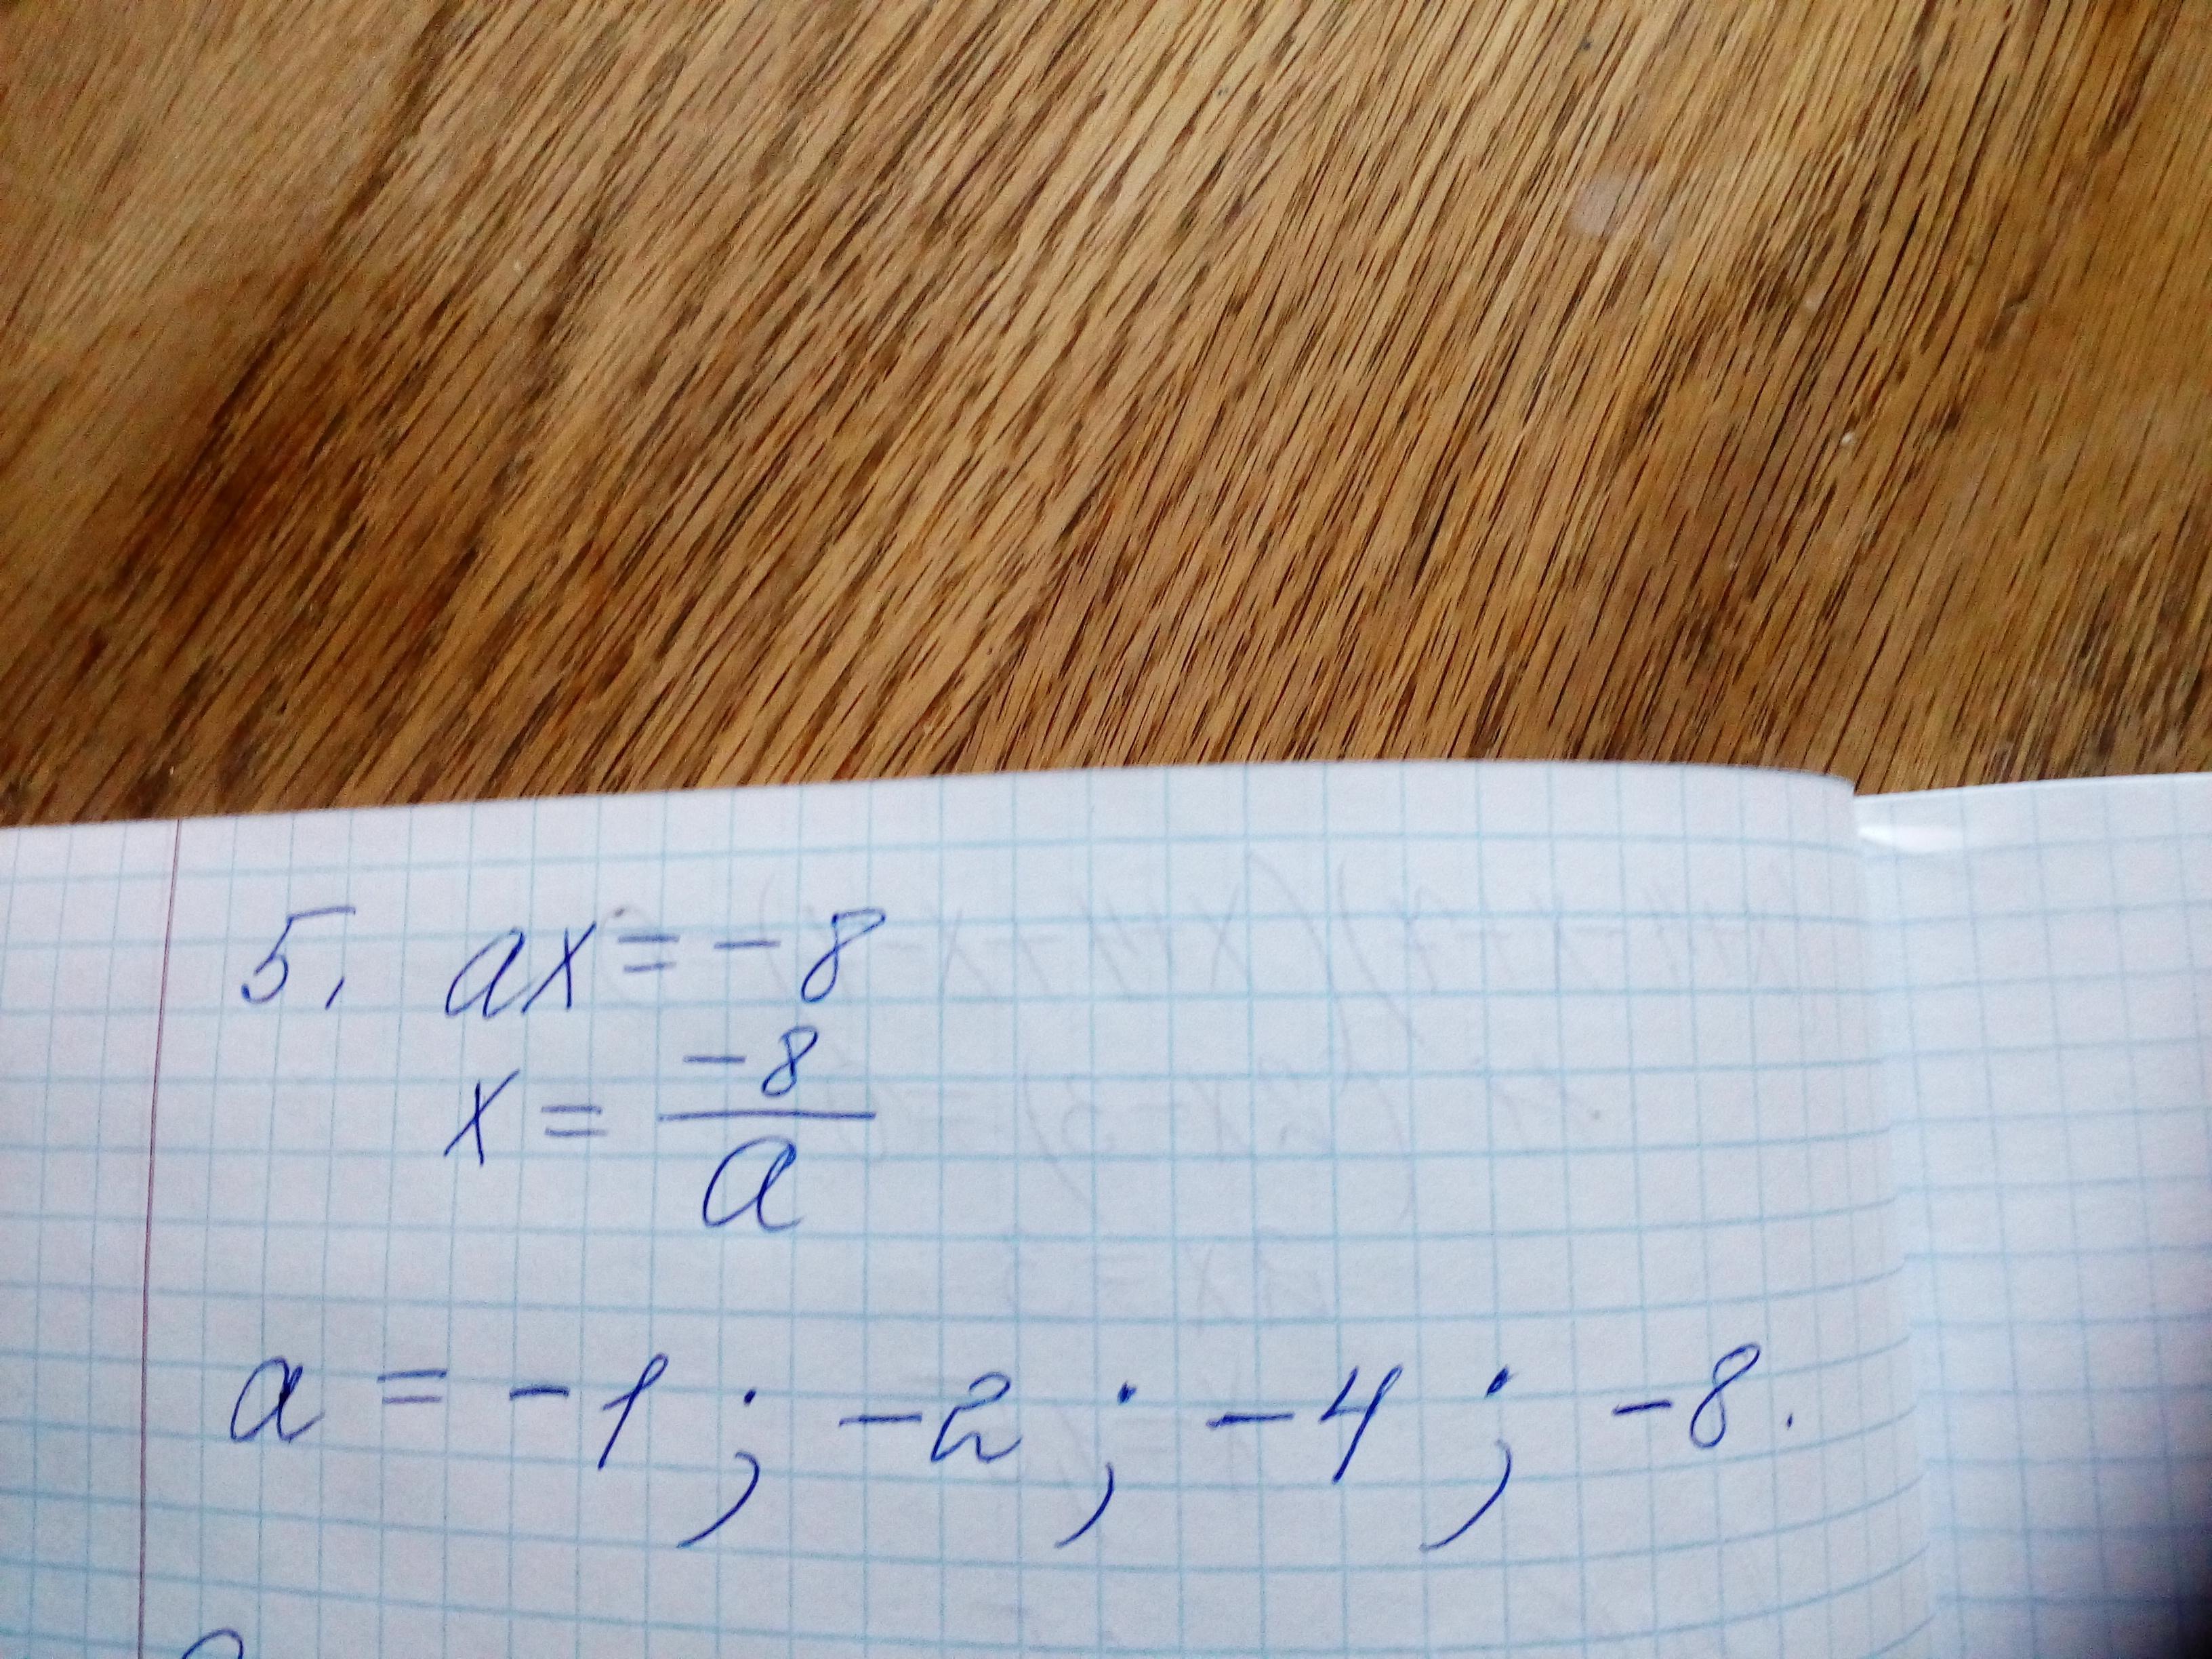 5. ax = -8
x = -8/a
a = -1; -2; -4; -8.